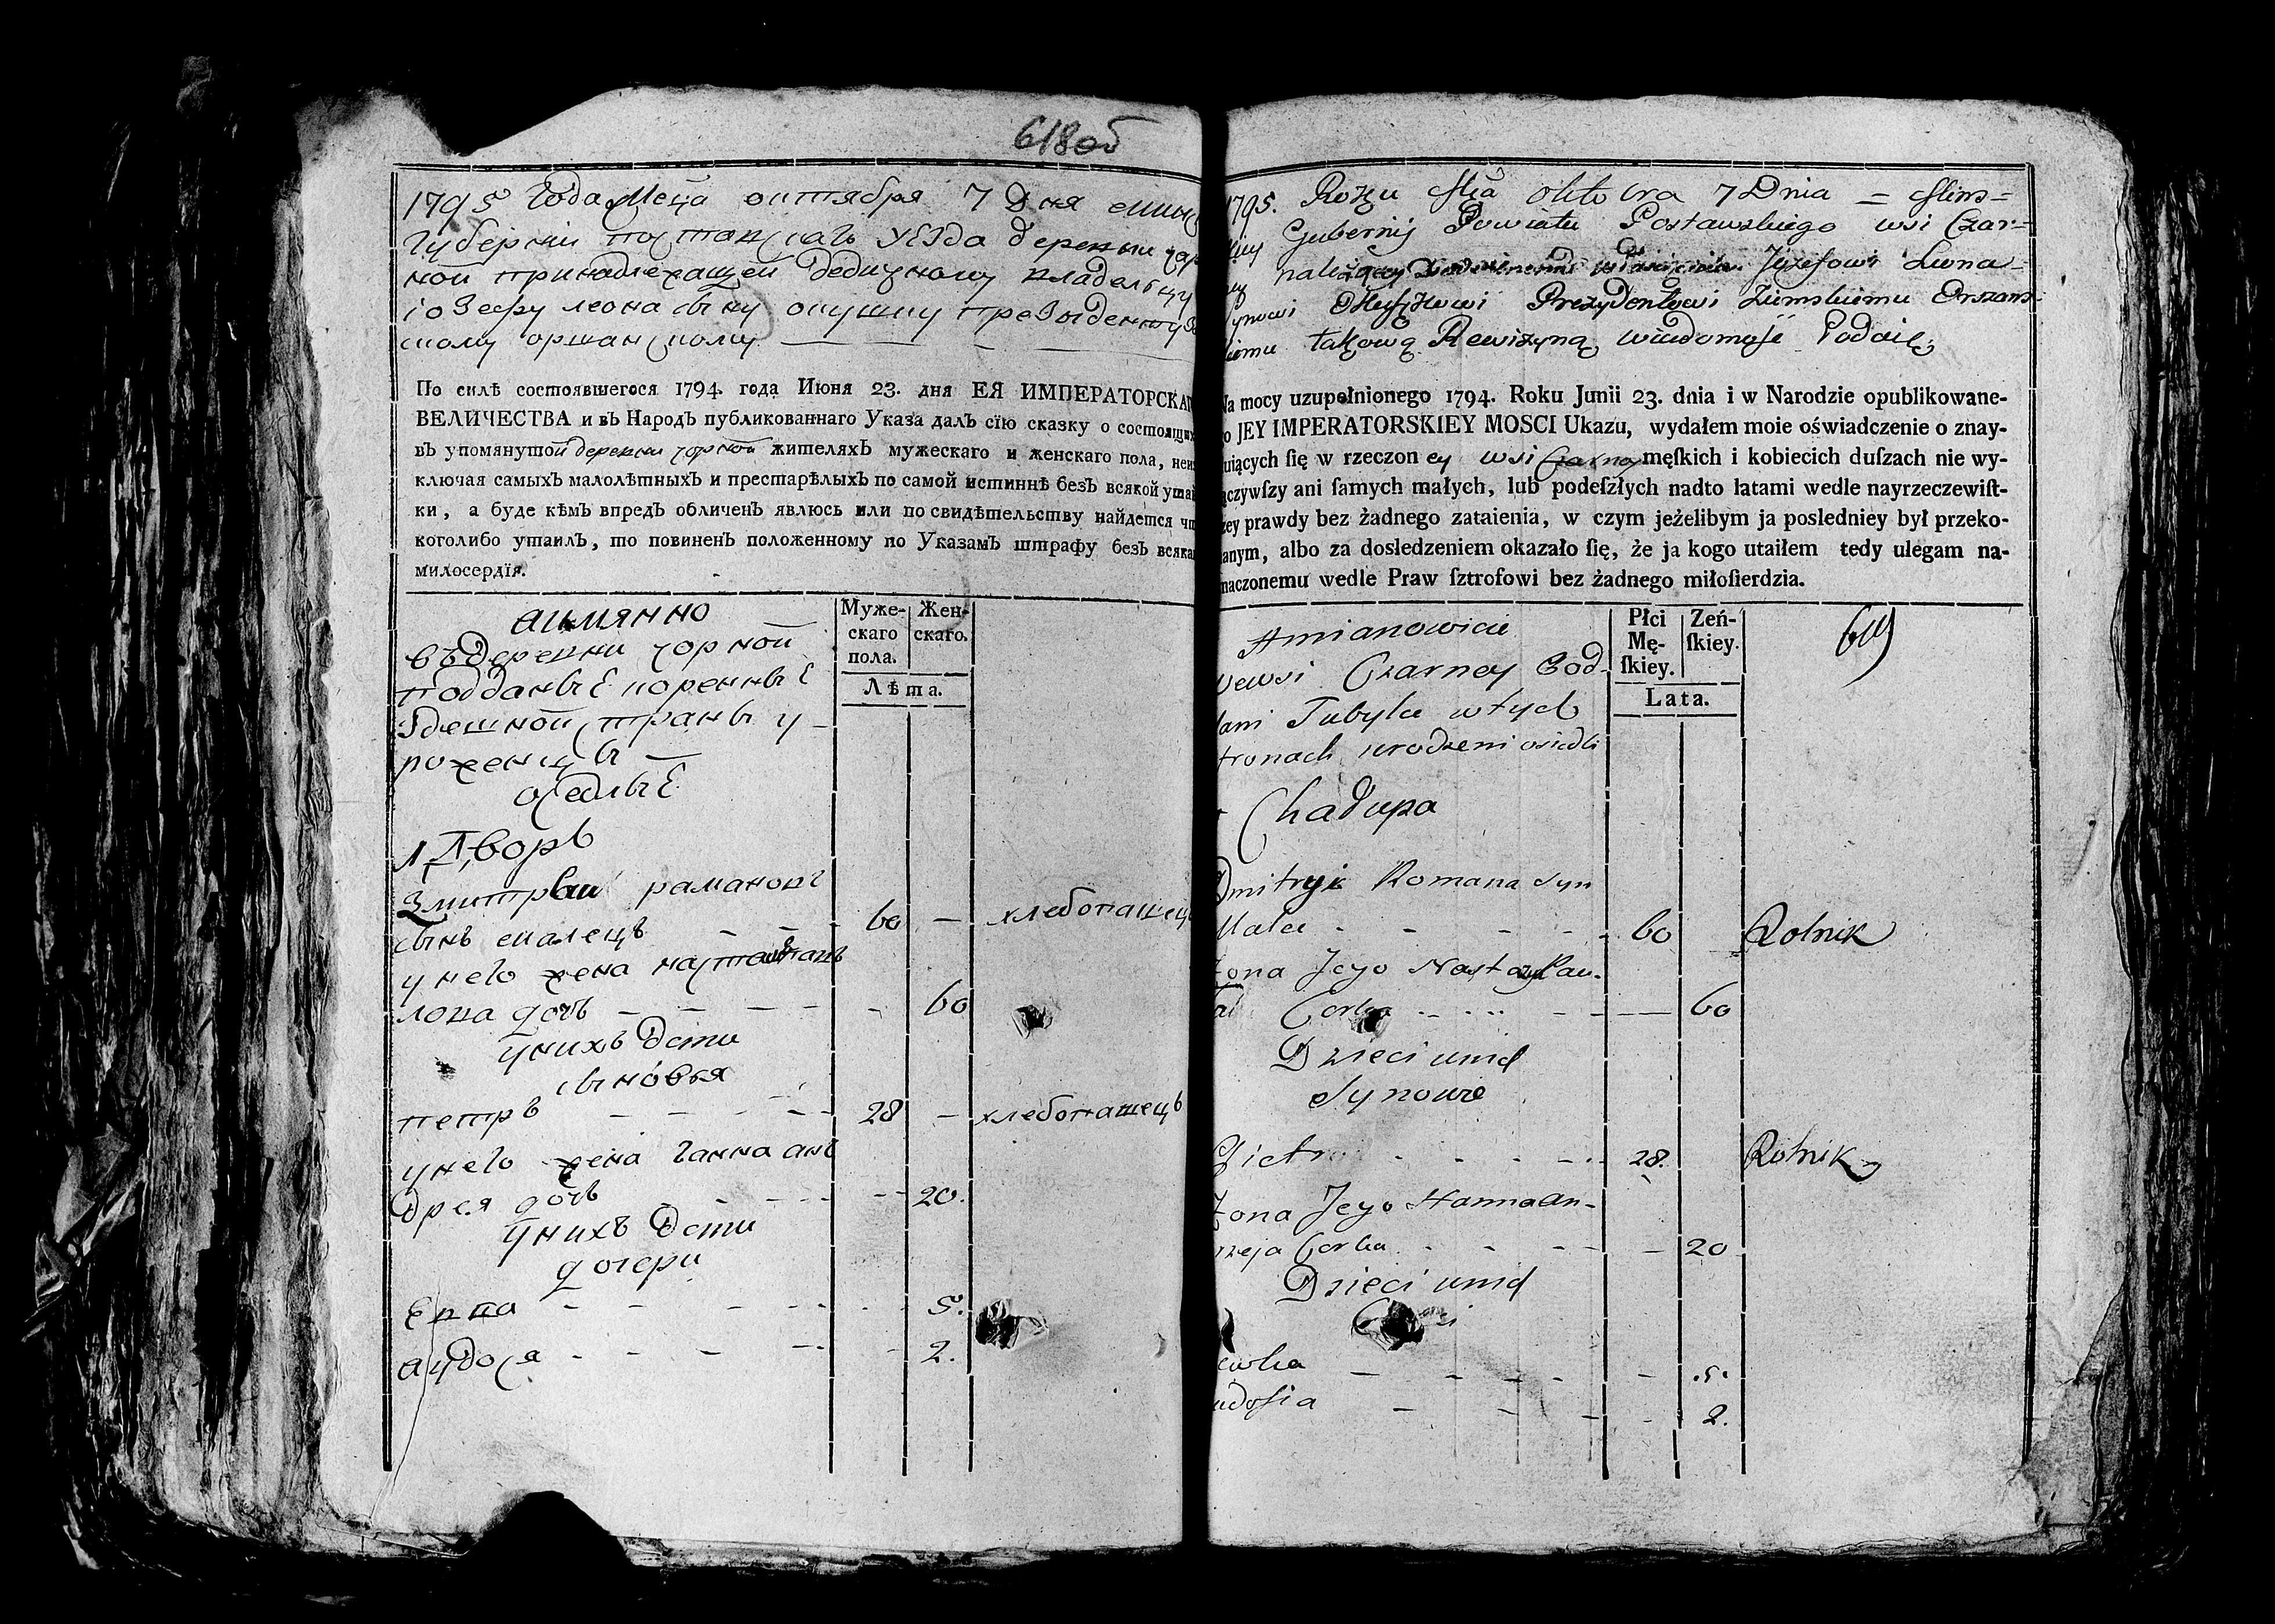 618об
1795 Года Меца октября 7 Дня минс
Губернии поставскаго уезда деревни чар
ной принадлежащей дедичному владельцу
іозефу леона сыну президенту
скому оршанскому
По силѣ состоявшегося 1794. года Июня 23. дня ЕЯ ИМПЕРАТОРСКАГ
ВЕЛИЧЕСТВА и въ Народъ публикованнаго Указа далъ сїю сказку о состоящих
въ упомянутой деревни чорной жителяхъ мужескаго и женскаго пола, неис
ключая самыхъ малолѣтныхъ и престарѣлыхъ по самой истиннѣ безъ всякой утай
ки, а буде кѣмъ впредъ обличенъ явлюсь или по свидѣтельству найдется чт
коголибо утаилъ, то повиненъ положенному по Указамъ штрафу безъ всяка
милосердїя.
аимянно
Муже-
скаго
пола.
Жен-
скаго.
Лѣта.
въ деревни чорной
подданые коренные
здешной страны у-
роженцы
оседлые
1. Дворъ
Змитрыи рамановъ
сынъ малецъ - - 60 — хлебопашецъ
у него жена настася пав
лова дочь - - - - - 60
у нихъ дети
сыновья
петръ - - - - 28 — хлебопашецъ
у него жена ганна анъ
дрея дочь - - - - - 20.
у нихъ дети
дочери
Евка - - - - - - 5.
аудося - - - - - 2.
1795. Roku Mca oktobra 7 Dnia = Mins=
Gubernij Powiatu Postawskiego wsi Czar=
należącey Józefowi Leona-
Synowi Prezydentowi Ziemskiemu Orszans=
iemu takową Rewizyną wiadomość Podaię
Na mocy uzupełnionego 1794. Roku Junii 23. dnia i w Narodzie opublikowane-
o JEY IMPERATORSKIEY MOSCI Ukazu, wydałem moie oświadczenie o znay-
uiących ſię w rzeczon ey wsi Czarney męſkich i kobiecich duſzach nie wy-
ączywſzy ani ſamych małych, lub podeſzłych nadto latami wedle nayrzeczewiſt-
zey prawdy bez żadnego zataienia, w czym jeżelibym ja posledniey był przeko-
anym, albo za dosledzeniem okazało ſię, że ja kogo utaiłem tedy ulegam na-
naczonemu wedle Praw ſztrofowi bez żadnego miłoſierdzia.
Amianowicie
Płci
Mę-
ſkiey.
Zeń-
ſkiey.
Lata.
619
wewsi Czarney Pod-
dani Tubylce w tych
tronach urodzeni osiedli
Chałupa
Dmitryi Romana Syn
Malec - - - - - 60 Rolnik
Zona Jego Nasta Paw-
Corka - - - - - 60
Dzieci unich
Synowie
Pietr - - - - - 28. Rolnik
Zona Jego Hanna An-
rzeja Corka - - - - - 20
Dzieci unich
ewka - - - - - .5.
udosia - - - - 2.